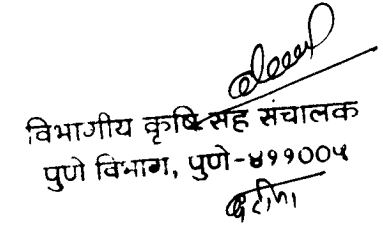 विभागीय कृषि सह संचालक
पुणे विभाग, पुणे-४११००५